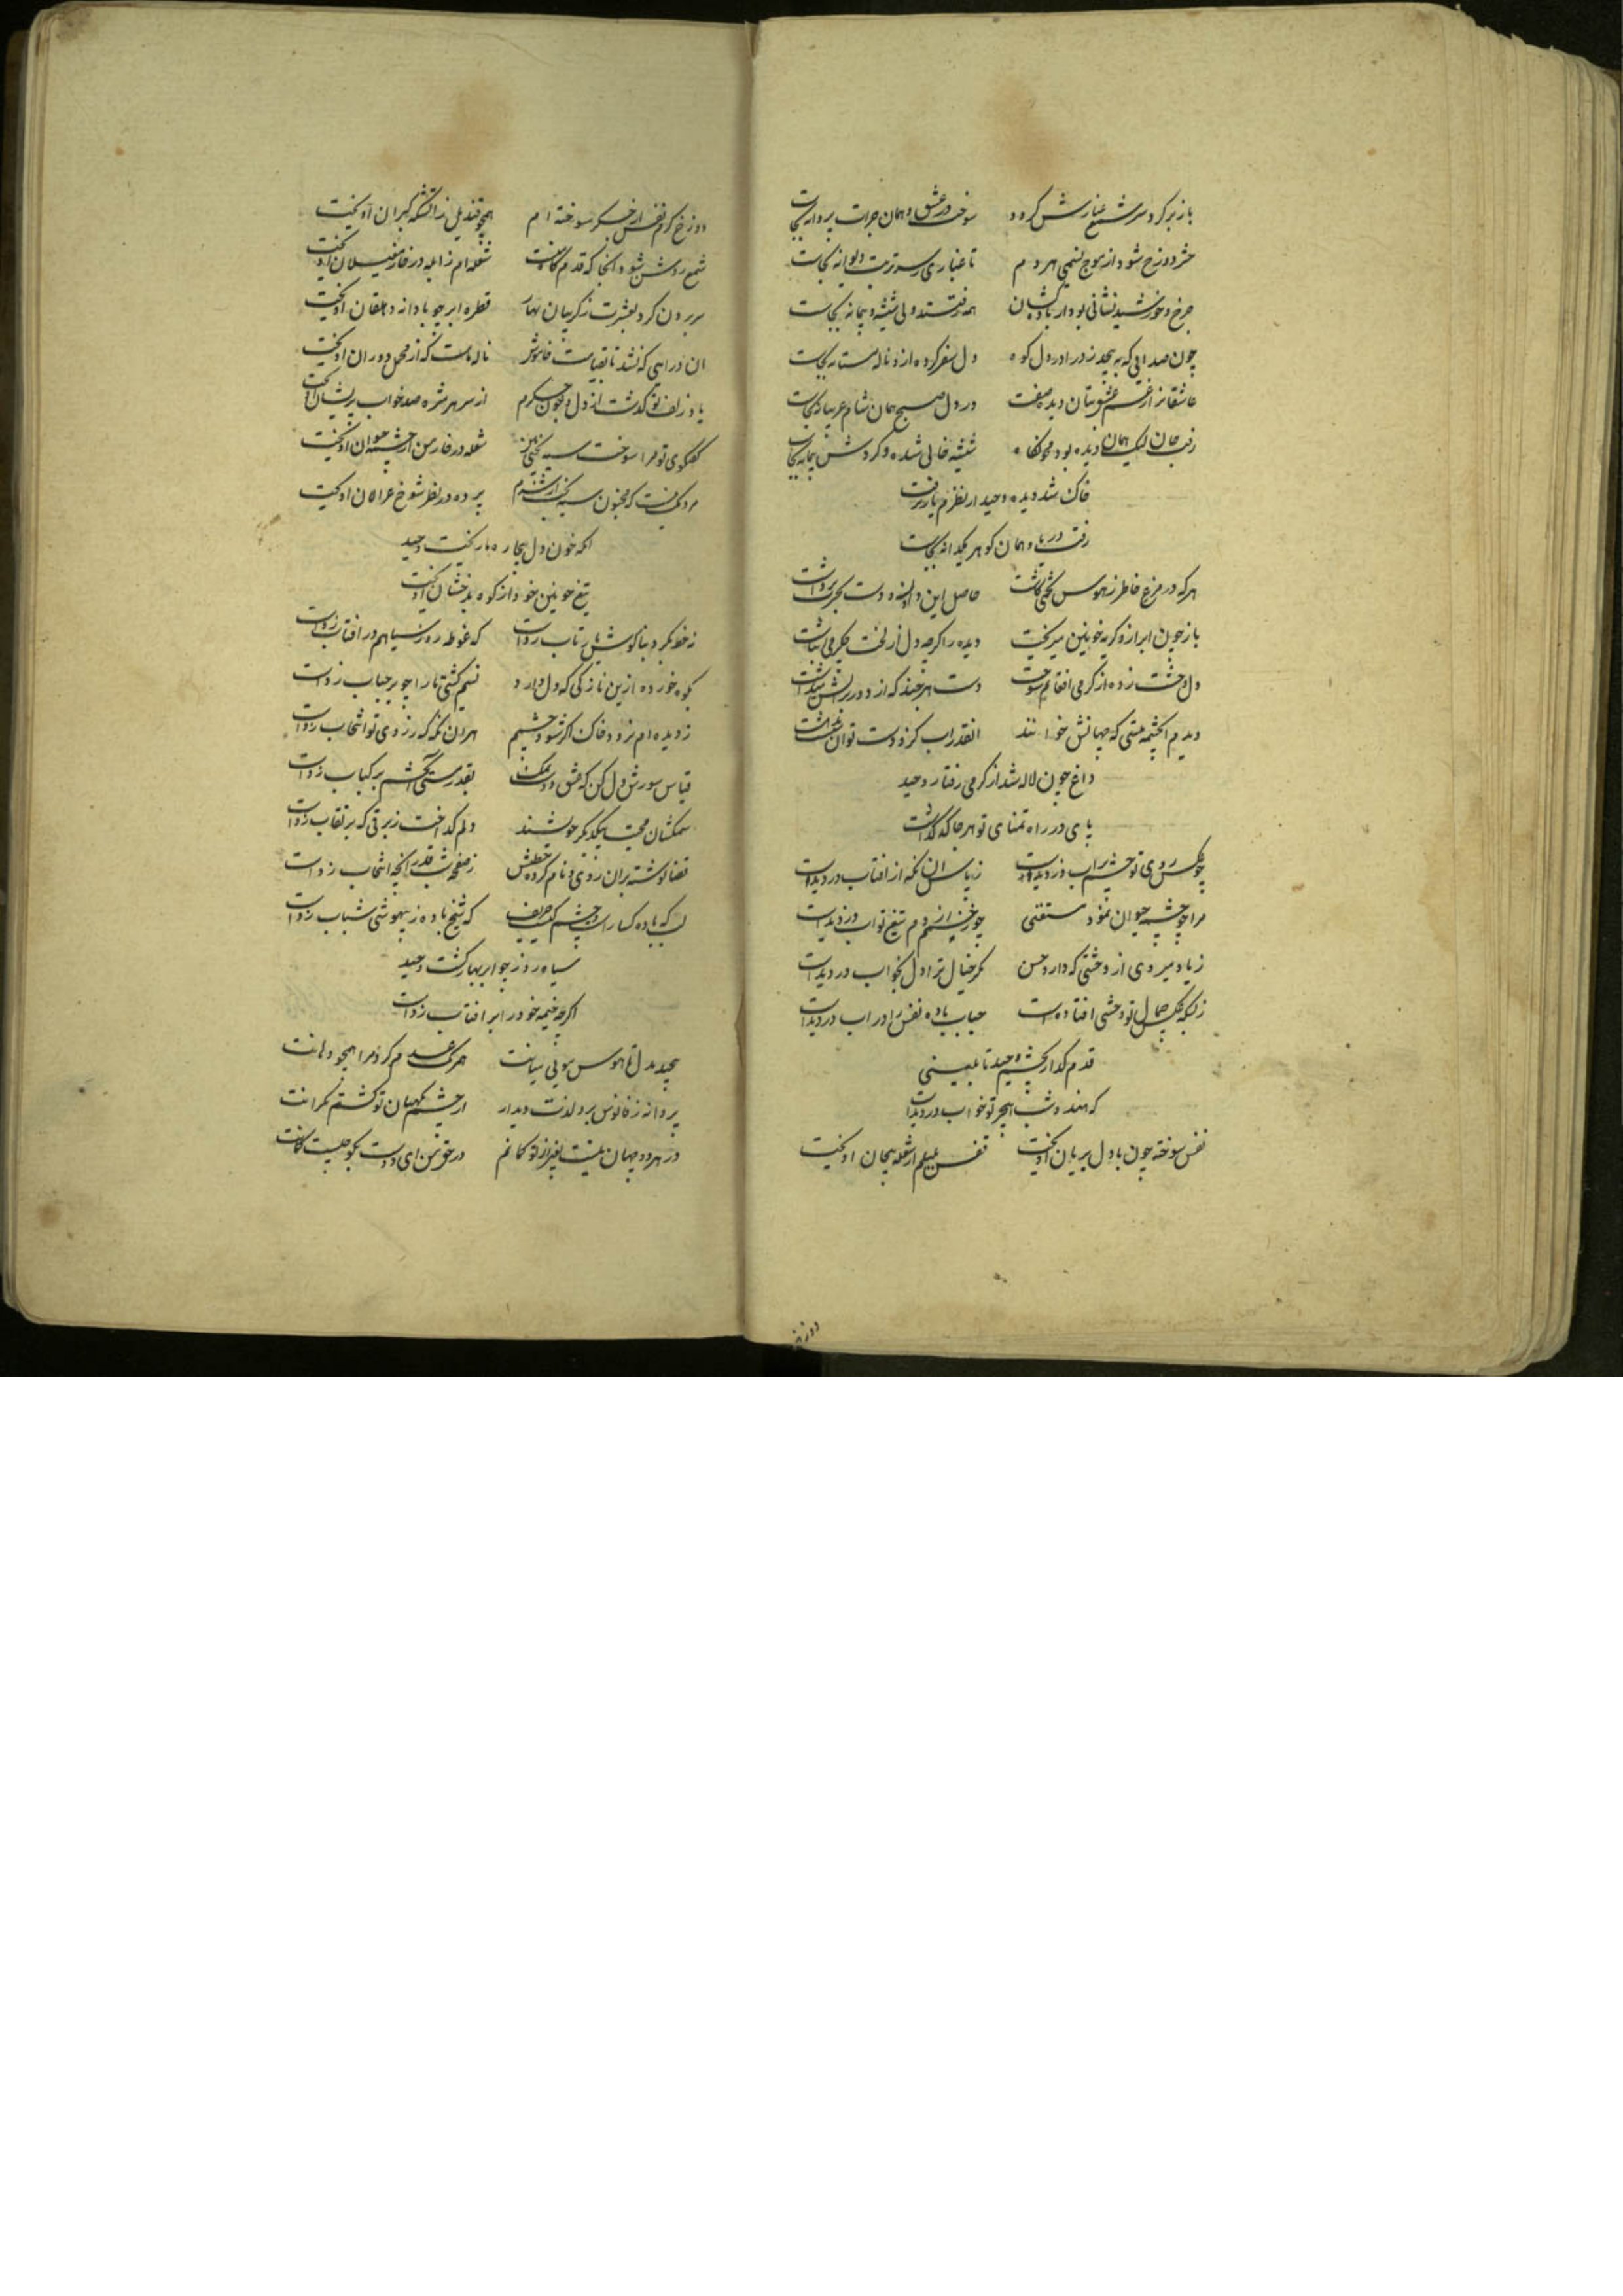 باز بر کرد سر شمع غبارش کردد سوخت در عشق و همان جرات پروانه بجاست
حشر دوزخ شود از موج نسیمی هر دم تا غباری بسر تربت دیوانه بجاست
چرخ و خورشید نشانی بود از باده‌کشان همه رفتند ولی شیشه و پیمانه بجاست
چون صدایی که به پیچد زدرا در دل کوه دل سفر کرده ازو ناله مستانه بجاست
عاشقانرا زغم عشق بتان دیده صفت در دل صبح همان شام غریبانه بجاست
رفت جان لیک همان دیده بود محو نگاه شیشه خالی شده و کردش پیمانه بجاست
خاک شد دیده وحید از نظرم یار نرفت
رفت دریا و همان کوهر یکدانه بجاست
هر که در مزرع خاطر ز هوس تخمی کاشت حاصل این دو لبه دست بحسرت برداشت
باز چون ابر ازو کریه خونین میریخت دیده را کرچه دل از لخت جکر می‌انباشت
دل وحشت زده از کرمی افغانم سوخت دست هر چند که از دور برآتش میداشت
دیدم این چشمه هستی که جهانش خوانند آنقدر آب کزو دست توان شست نداشت
داغ چون لاله شد از کرمی رفتار وحید
پای در راه تمنای تو هر جا که کذاشت
چو عکس روی تو چشم پر آب دزدیدست زپاس آن نکه از آفتاب دزدیدست
مرا چو چشمه حیوان نمود مستغنی چو زخم از دم تیغ تو آب دزدیدست
زیاد میروی از وحشتی که دارد حسن مکر خیال ترا دل بخواب دزدیدست
زبسکه عکس جمال تو وحشی افتادست حباب باده نفس را در آب دزدیدست
قدم کذار بچشم وحید تا بینی
که هندو شب هجر تو خواب دزدیدست
نفس سوخته چون با دل بریان آویخت قفس بلبلم از شعله بیجان آویخت
دوزخ
دوزخ کرم نفس از جکر سوخته ام همچو قندیل زآتشکه کبران آویخت
شمع روشن شود آنجا که قدم کاه منست شعله ام زابله در خار مغیلان آویخت
سر برون کرد بعشرت ز کریبان بهار قطره ابر چو با دانه دهقان آویخت
آن درایی که نشد تا بقیامت خاموش ناله ماست که از محمل دوران آویخت
یاد زلف تو کذشت از دل و چون جکرم از سر هر مژه صد خواب پریشان آویخت
کفتکوی تو مرا سوخت سیه بختی بین شعله در خار من از چشمه حیوان آویخت
مردمک نیست که مجنون سیه بخت از شرم پرده در نظر شوخ غزالان آویخت
آنکه خون دل بیچاره ما ریخت وحید
تیغ خونین خود از کوه بدخشان آویخت
نه خط بکرد بناکوش یار تاب زدست که غوطه روز سیاهم در آفتاب زدست
بکوه خورده ازین نازکی که دل دارد نسیم کشتی ما را چو بر حباب زدست
ز دیده‌ام نرود خاک اکر شود چشمم هر آن نکه که ز روی تو انتخاب زدست
قیاس سوزش دل کن که عشق دوست نمک بقدر تشنکی آتشم بر کباب زدست
ستمکشان محبت بیکدیکر خویشند دلم کداخت ز برقی که بر نقاب زدست
قضا نوشته بران روزی و نام کرده خطش ز صفحه شب قدر آنچه انتخاب زدست
بسکه باده کسارست چشم مست حریف که شیخ باده ز بیهوشی شباب زدست
سیاه روز چو ابر بهار کشت وحید
اکرچه خیمه خود را بر آفتاب زدست
پیچید بدل تا هوس موی میانت همرنک عدم کرد مرا همچو دهانت
پروانه ز فانوس برد لذت دیدار از چشم نکهبان تو کشتم نکرانت
در هر دو جهان نیست بغیر از تو کمانم در حق من ای دوست بکو چیست کمانت